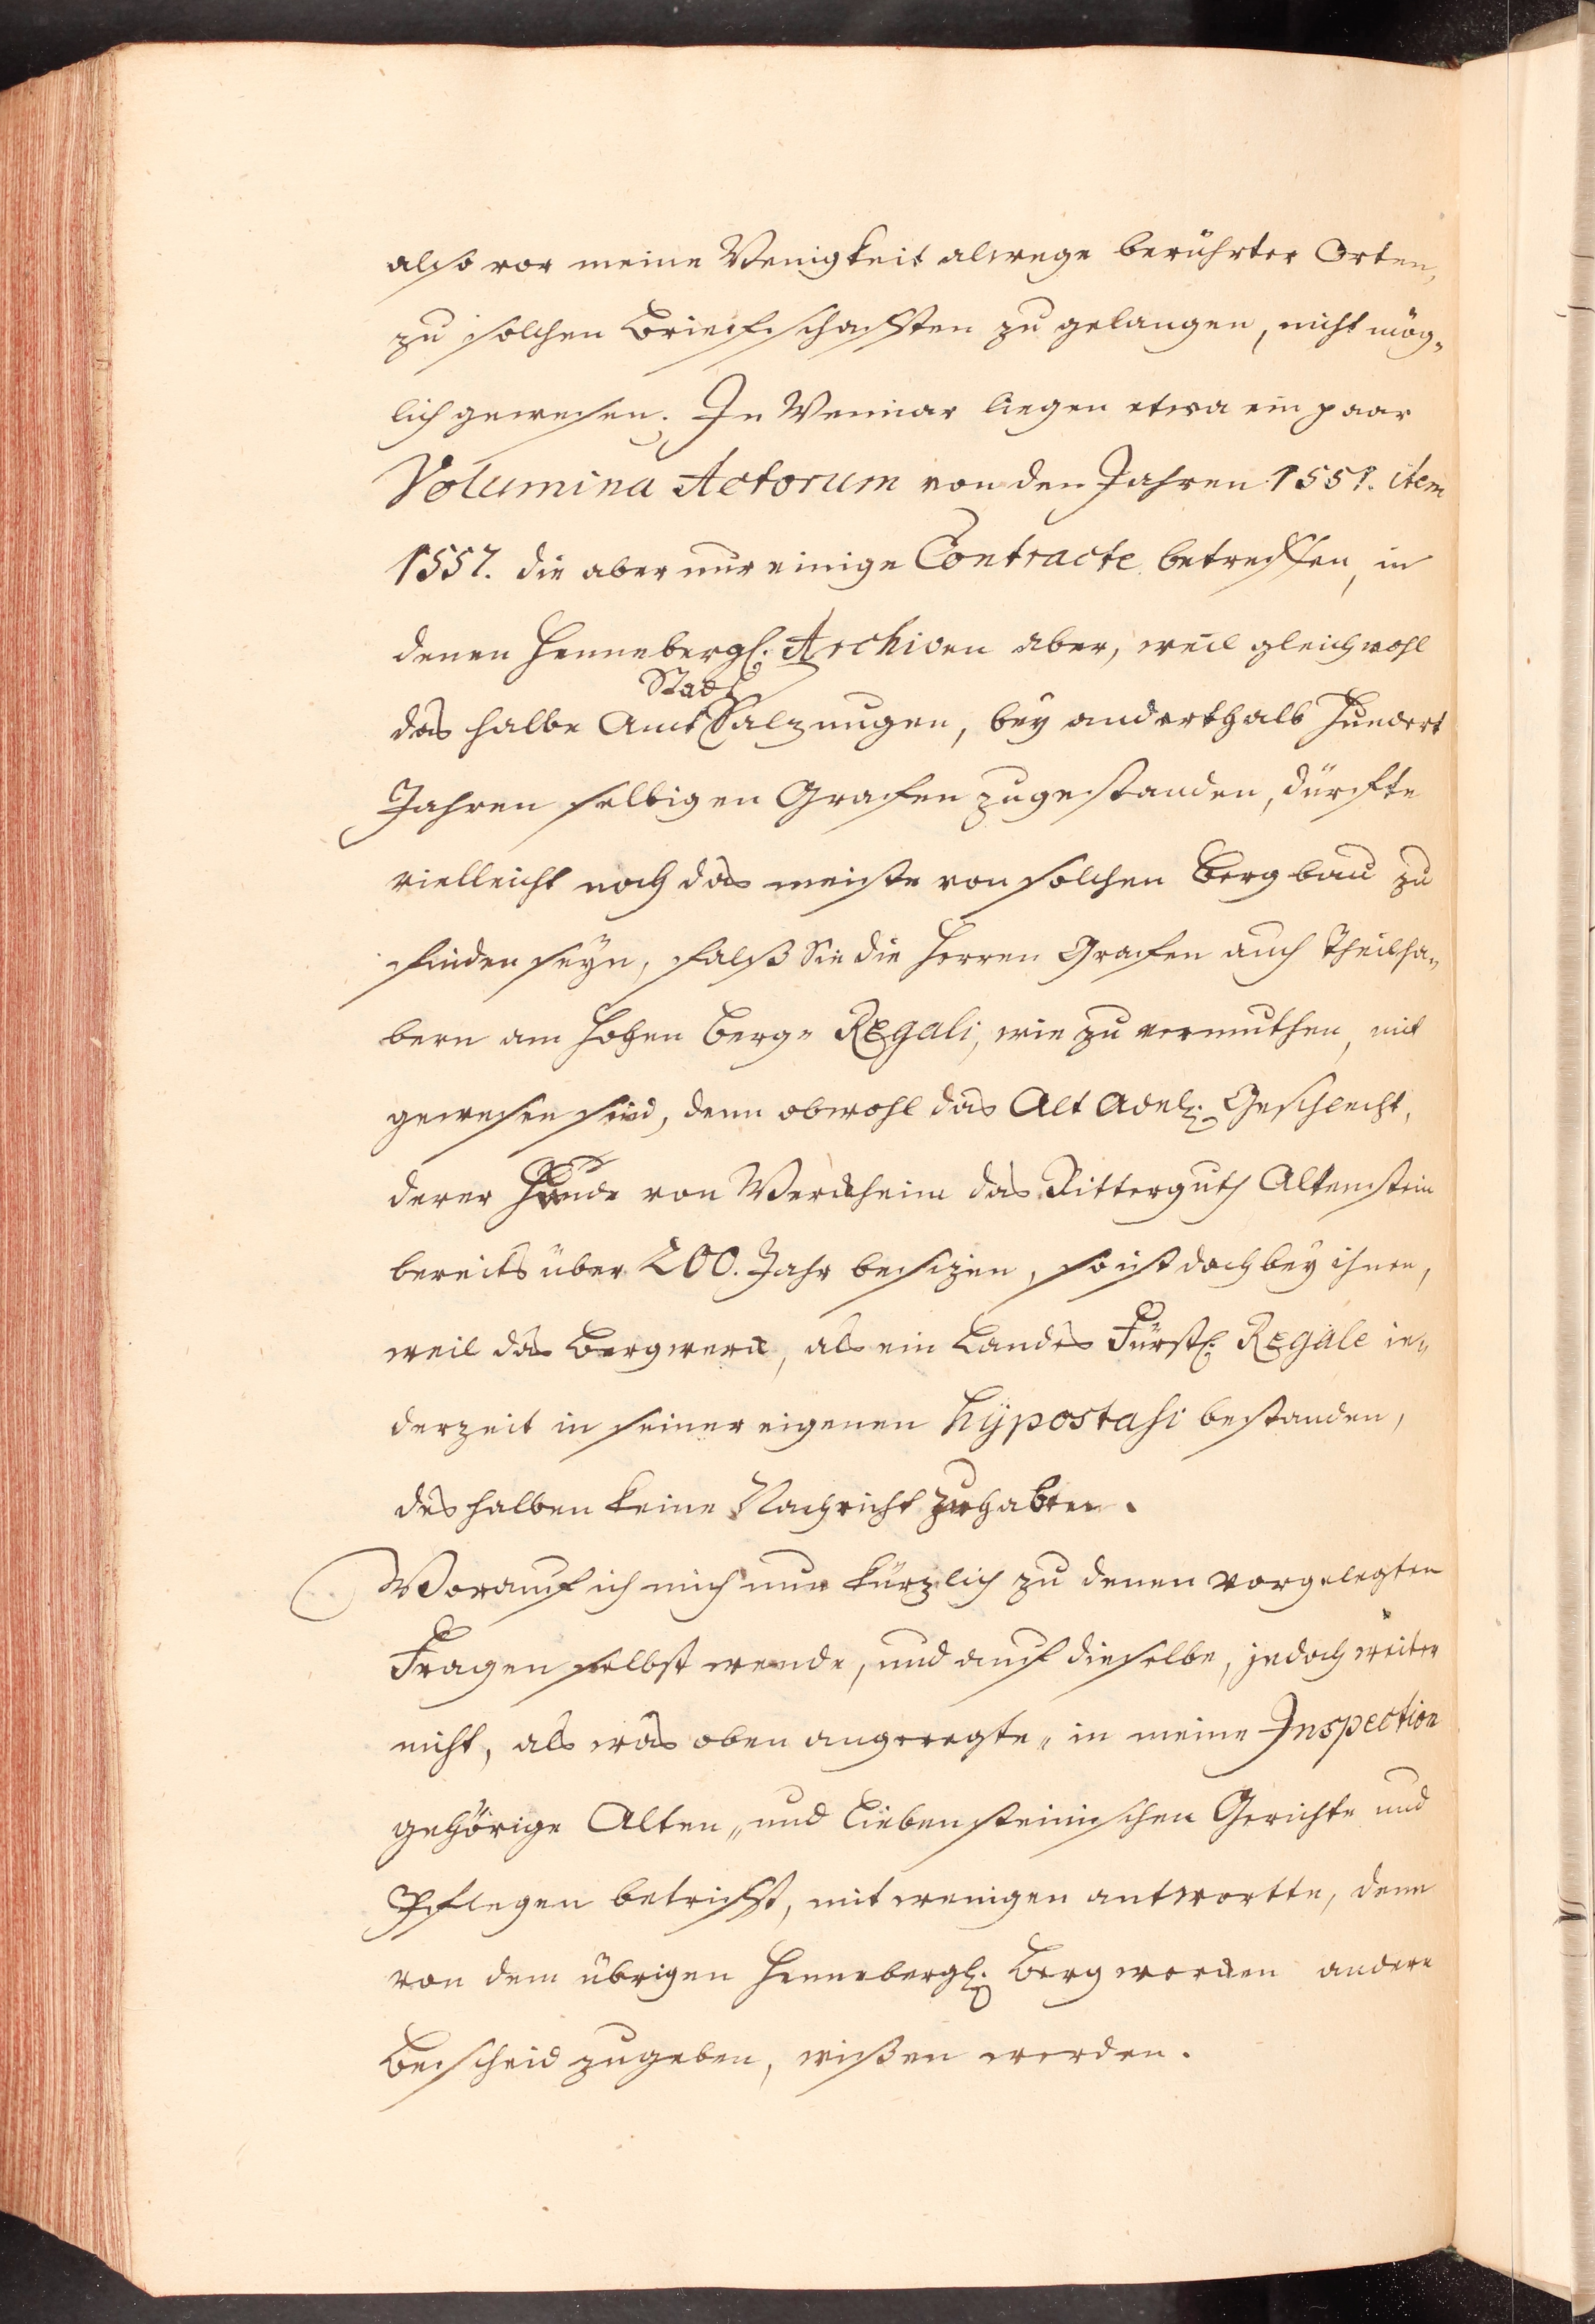 also vor meine Wenigkeit alwege berührter Orten,
zu solchen Briefschafften zu gelangen, nicht mög-
lich gewesen. In Weimar liegen etwa ein paar
Volumina Actorum von den Jahren 1551. item
1557. die aber nur einige Contracte betreffen, in
denen Hennebergl. Archiven aber, weil gleichwohl
Stadt
das halbe Amt Salzungen, bey anderthalb hundert
Jahren selbigen Grafen zugestanden, dürffte
vielleicht noch das meiste von solchen Bergbau zu
finden seyn, falß Sie die Herren Grafen auch Theilha-
bern am hohen Berg- Regali, wie zu vermuthen, mit
gewesen sind, denn obwohl das Alt Adel. Geschlecht,
derer Hunde von Wenckheim das Ritterguth Altenstein
bereits über 200. Jahr besizen, so ist doch bey ihnen,
weil das Bergwerck, als ein Landes Fürstl. Regale ie-
derzeit in seiner eigenen hÿpostasi bestanden,
deshalben keine Nachricht zuhaben.
Worauf ich mich nun kürzlich zu denen vorgelegten
Fragen selbst wende, und auf dieselbe, jedoch weiter
nicht, als was oben angeregte- in meine Inspection
gehörige Alten- und Liebensteinischen Gerichte und
Pflegen betrifft, mit wenigen antwortte, denn
von dem übrigen Hennebergl. Bergwercken andere
Bescheid zugeben, wißen werden.